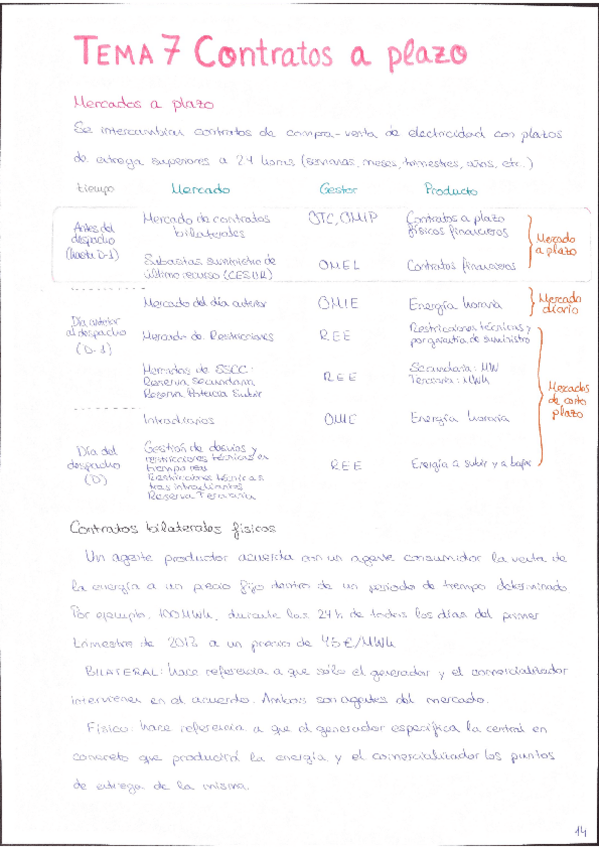 TEMA 7 Contratos a plazo
Mercados a plazo
Se intercambian contratos de compra-venta de electricidad con plazos
de entrega superiores a 24 horas (semanas, meses, trimestres, años, etc.)
tiempo Mercado Gestor Producto
Antes del
despacho
(hasta D-1)
Mercado de contratos
bilaterales
OTC, OMIP
Contratos a plazo
físicos financieros
Subastas suministro de
último recurso (CESUR)
OMEL
Contratos financieros
Mercado
a plazo
Día anterior
al despacho
(D-1)
Mercado del día anterior
OMIE
Energía horaria
Mercado
diario
Mercado de Restricciones
REE
Restricciones técnicas y
por garantía de suministro
Mercados de SSCC:
Reserva Secundaria
Reserva Potencia Subir
REE
Secundaria: MW
Terciaria: MWh
Mercados
de corto
plazo
Intradiarios
OMIE
Energía horaria
Día del
despacho
(D)
Gestión de desvíos y
restricciones técnicas en
tiempo real
Restricciones técnicas
tras intradiarios
Reserva Terciaria
REE
Energía a subir y a bajar
Contratos bilaterales físicos
Un agente productor acuerda con un agente consumidor la venta de
la energía a un precio fijo dentro de un periodo de tiempo determinado
Por ejemplo: 100MWh, durante las 24h de todos los días del primer
trimestre de 2012 a un precio de 45€/MWh
BILATERAL: hace referencia a que sólo el generador y el comercializador
intervienen en el acuerdo. Ambos son agentes del mercado.
Físico: hace referencia a que el generador especifica la central en
concreto que producirá la energía y el comercializador los puntos
de entrega de la misma.
14